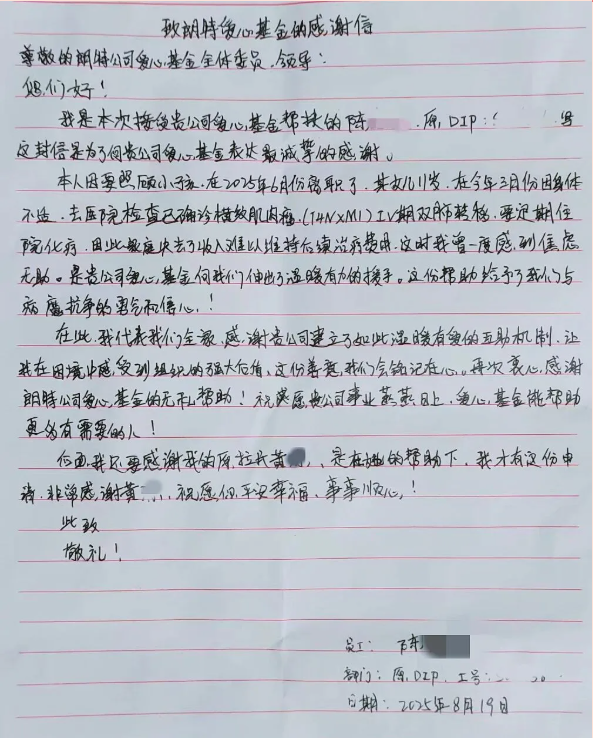 致朗特爱心基金的感谢信
尊敬的朗特公司爱心基金全体委员、领导：
您们好！
我是本次接受贵公司爱心基金帮扶的陈 原DIP： 写
这封信是为了向贵公司爱心基金表达最诚挚的感谢。
本人因要照顾小孩，在2025年6月份离职了，其女儿11岁，在今年三月份因身体
不适，去医院检查已确诊横纹肌肉瘤，(T4NXM1)IV期双肺转移，要定期住
院化疗，因此家庭失去了收入难以维持后续治疗费用，这时我曾一度感到焦虑
无助。是贵公司爱心基金向我们伸出了温暖有力的援手。这份帮助给予了我们与
病魔抗争的勇气和信心！
在此，我代表我们全家，感谢贵公司建立了如此温暖有爱的互助机制，让
我在困境中感受到组织的强大价值，这份善意，我们会铭记在心。再次衷心感谢
朗特公司爱心基金的无私帮助！祝愿贵公司事业蒸蒸日上，爱心基金能帮助
更多有需要的人！
后面，我还要感谢我的原拉长黄 ，是在她的帮助下，我才有这份申
请，非常感谢黄 ，祝愿你平安幸福、事事顺心！
此致
敬礼！
员工：陈
部门：原DIP 工号：
日期：2025年8月19日